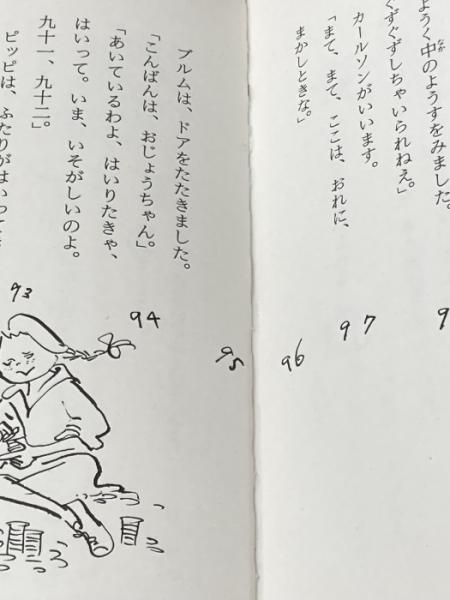 ようく中のようすをみました。
ぐずぐずしちゃいられねえ。」
カールソンがいいます。
「まて、まて、ここは、おれに、
まかしときな。」
ブルムは、ドアをたたきました。
「こんばんは、おじょうちゃん。」
「あいているわよ、はいりたきゃ、
はいって。いま、いそがしいのよ。
九十一、九十二。」
ピッピは、ふたりがはいって
93
94
95
96
97